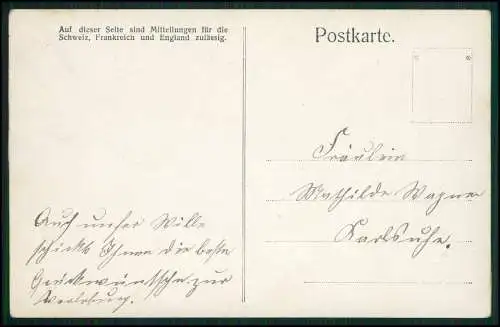 Auf dieser Seite sind Mitteilungen für die
Schweiz, Frankreich und England zulässig.
Postkarte.
Fräulein
Mathilde Wagner
Karlsruhe.
Auch unser Willi
schickt Ihnen die besten
Glückwünsche zur
Verlobung.